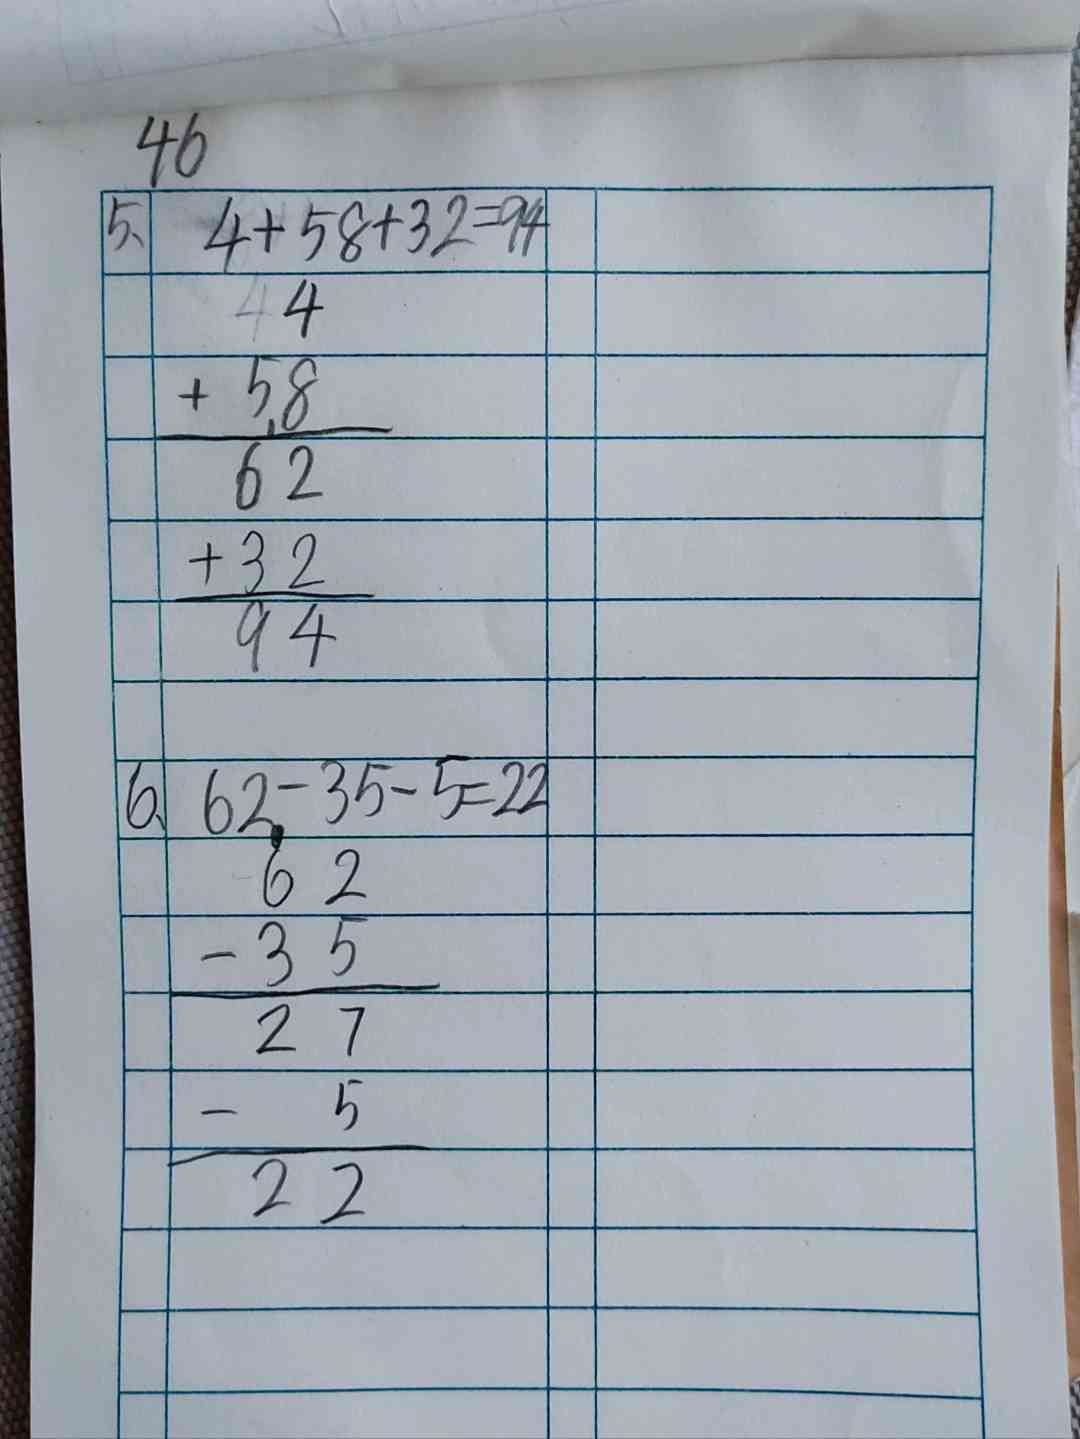 46
5. 4+58+32=94
4
+ 58
62
+32
94
6. 62-35-5=22
62
-35
27
- 5
22